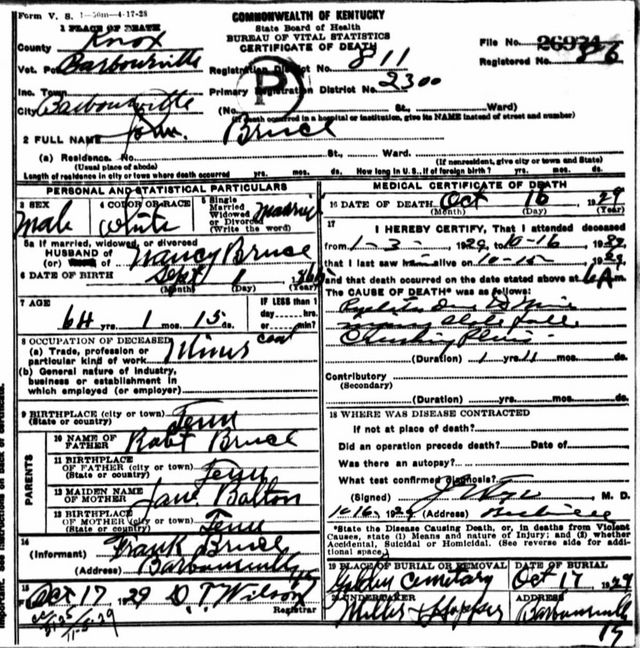 Form V. S. 1-50m-4-17-28
COMMONWEALTH OF KENTUCKY
State Board of Health
BUREAU OF VITAL STATISTICS
CERTIFICATE OF DEATH
1 PLACE OF DEATH
County Knox
File No. 26974
Vot. Barbourville
Registration District No. 811
Registered No. 86
Inc. Town
Primary Registration District No. 2300
City Barbourville
(No. St., Ward)
(If death occurred in a hospital or institution, give its NAME instead of street and number)
2 FULL NAME John Bruce
(a) Residence. No. St., Ward.
(Usual place of abode) (If nonresident, give city or town and State)
Length of residence in city or town where death occurred yrs. mos. ds. How long in U. S., if of foreign birth? yrs. mos. ds.
PERSONAL AND STATISTICAL PARTICULARS
3 SEX Male
4 COLOR OR RACE White
5 Single Married Widowed or Divorced (Write the word) Married
5a If married, widowed, or divorced
HUSBAND of (or) Nancy Bruce
6 DATE OF BIRTH Sept 1
(Month) (Day) (Year)
7 AGE
64 yrs. 1 mos. 15 ds.
IF LESS than 1 day hrs. or min?
8 OCCUPATION OF DECEASED
(a) Trade, profession or particular kind of work Miner coal
(b) General nature of industry, business or establishment in which employed (or employer)
9 BIRTHPLACE (city or town) Tenn
(State or country)
PARENTS
10 NAME OF FATHER Robt Bruce
11 BIRTHPLACE OF FATHER (city or town) Tenn
(State or country)
12 MAIDEN NAME OF MOTHER Jane Balton
13 BIRTHPLACE OF MOTHER (city or town) Tenn
(State or country)
14 (Informant) Frank Bruce
(Address) Barbourville Ky
15 Oct 17 1929 D. T. Wilson
Registrar
MEDICAL CERTIFICATE OF DEATH
16 DATE OF DEATH Oct 16 1929
(Month) (Day) (Year)
17 I HEREBY CERTIFY, That I attended deceased
from 1-3- 1929 to 10-16 1929
that I last saw alive on 10-15 1929
and that death occurred on the date stated above at 6 A m.
The CAUSE OF DEATH* was as follows:
(Duration) 1 yrs. 11 mos. ds.
Contributory
(Secondary)
(Duration) yrs. mos. ds.
18 WHERE WAS DISEASE CONTRACTED
If not at place of death?
Did an operation precede death? Date of
Was there an autopsy?
What test confirmed diagnosis?
(Signed) M. D.
10-16, 1929 (Address)
*State the Disease Causing Death, or, in deaths from Violent
Causes, state (1) Means and nature of Injury; and (2) whether
Accidental, Suicidal or Homicidal. (See reverse side for additional space.)
19 PLACE OF BURIAL OR REMOVAL Cemetary
DATE OF BURIAL Oct 17 1929
20 UNDERTAKER Miller & Hopper
ADDRESS Barbourville